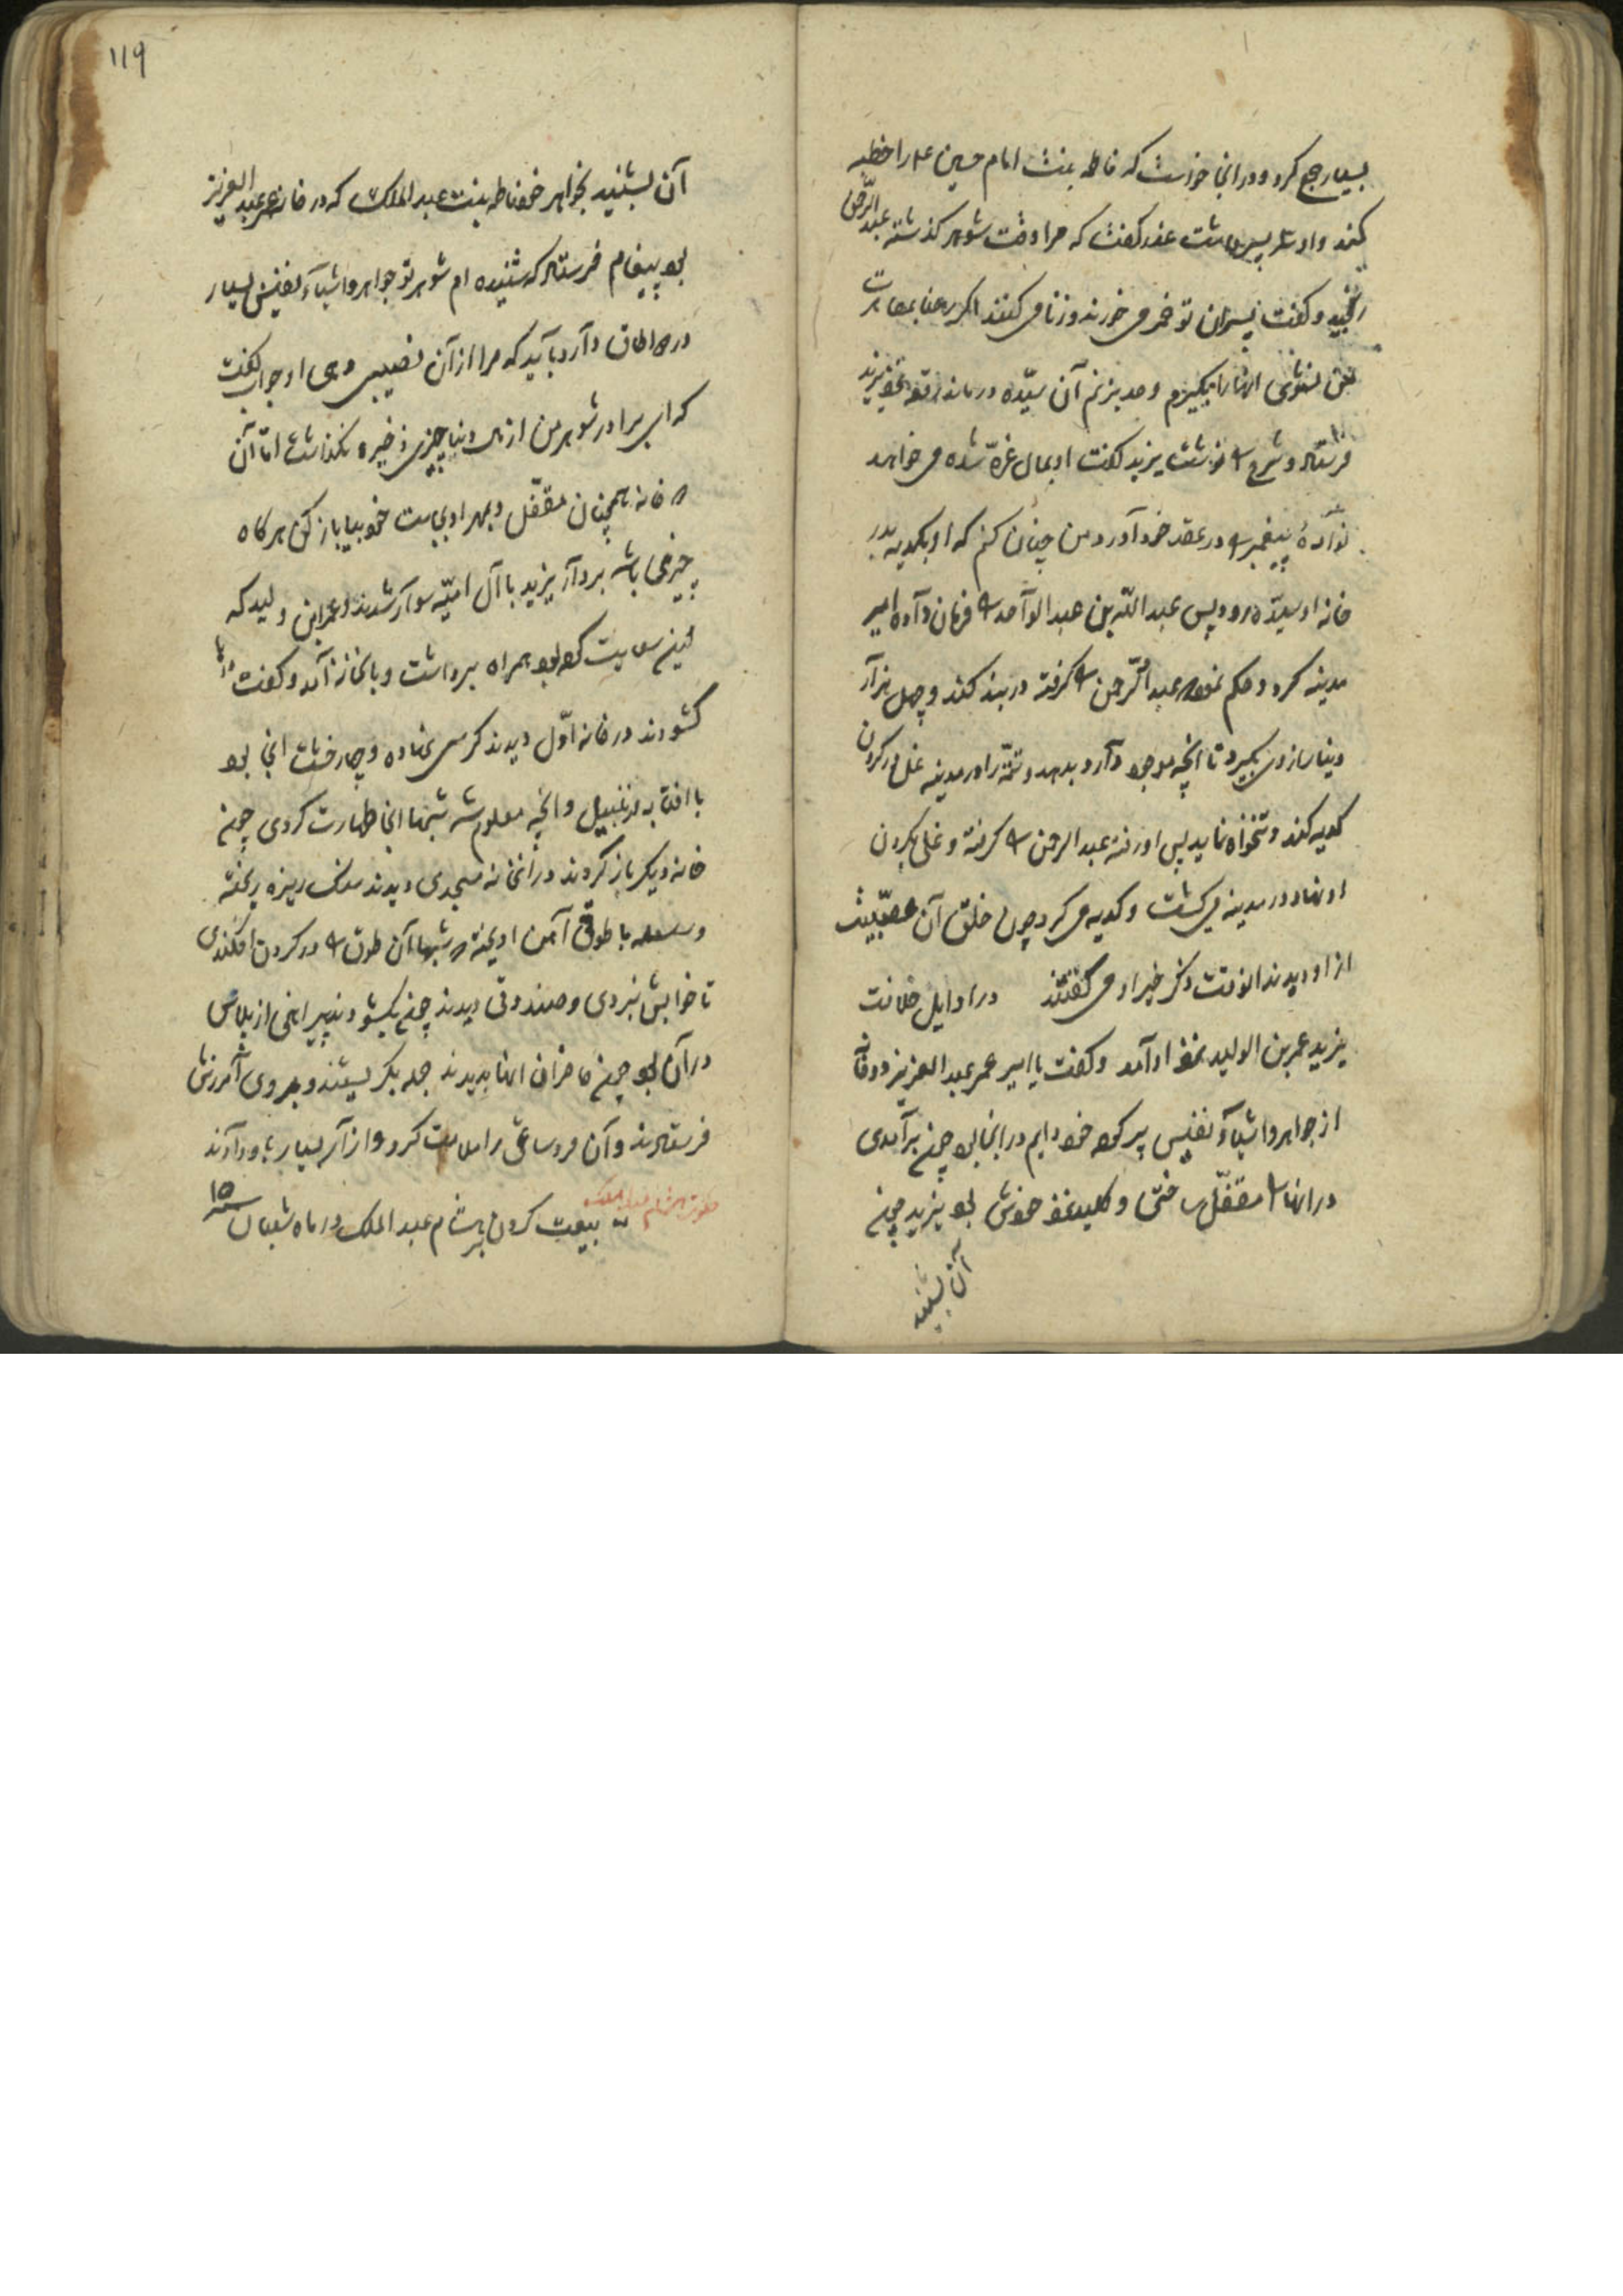 بسیار جمع کرد و در انجا خواست که فاطمه بنت امام حسین علیه را خطبه
کند و او را پسران داشت عذر گفت که مرا وقت شوهر گذشته عبد الرحمن
رنجید و گفت پسران تو خمر می خورند و زنا می کنند اگر رضا بمصاهرت
من نشوی انها را بگیرم و حد بزنم آن سیّده درماند رقعه بنزد یزید
فرستاد و شرح نوشت یزید گفت او بمال غرّه شده می خواهد
نوادهٔ پیغمبر در عقد خود آورد من چنان کنم که او بکدیه بدر
خانه او سیده رود پس عبد اللّه بن عبد الواحد فرمان داده امیر
مدینه کرد و حکم نمود عبد الرّحمن گرفته در بند کند و چهل هزار
دینار از وی بگیرد تا انچه موجود دارد بدهد و تتمّه را در مدینه غل در گردن
کدیه کند و تنخواه نماید پس او رفته عبد الرحمن گرفته و غل بگردن
او نهاد در مدینه می گشت و کدیه می کرد چون خلق آن مصیبت
از او دیدند انوقت ذکر خیر او می گفتند در اوایل خلافت
یزید عمر بن الولید نزد او آمد و گفت یا امیر عمر عبد العزیز دو خانه
از جواهر و اشیآء نفیس پر کرده خود دایم در انجا بود چون برآمدی
در انها مقفّل ساختی و کلید نزد خودش بود یزید چون
آن بشنید
119
آن بشنید بخواهر خود فاطمه بنت عبد الملک که در خانه عمر عبد العزیز
بود پیغام فرستاد که شنیده ام شوهر تو جواهر و اشیآء نفیس بسیار
در دو اطاق دارد باید که مرا از آن نصیبی دهی او جواب گفت
که ای برادر شوهر من از مال دنیا چیزی ذخیره نگذاشت امّا آن
دو خانه همچنان مقفّل و بمهر او بجاست خود بیا باز کن هرگاه
چیزی باشد بردار یزید با آل امیّه سوار شدند و عمر ابن ولید که
این سعایت کرده بود همراه برداشت و بانخانه آمد و گفت در
گشودند در خانه اوّل دیدند کرسی نهاده و چهار خشت انجا بود
با افتابه و زنبیل و انچه معلوم شد شبها انجا طهارت کردی چون
خانه دیگر باز کردند در انخانه مسجدی دیدند سنک ریزه ریخته
و سلسله با طوق آهن اویخته که شبها آن طوق در گردن افکندی
تا خوابش نبردی و صندوقی دیدند چون بگشودند پیراهنی از پلاس
در آن بود چون حاضران انها بدیدند جمله بگریستند و بر وی آمرزش
فرستادند و آن مرد ساعی را ملامت کرد و از آن بسیار یاد آورند
حکومت هشام عبد الملک بیعت کردن هشام عبد الملک در ماه شعبان سنه ۱۰۵